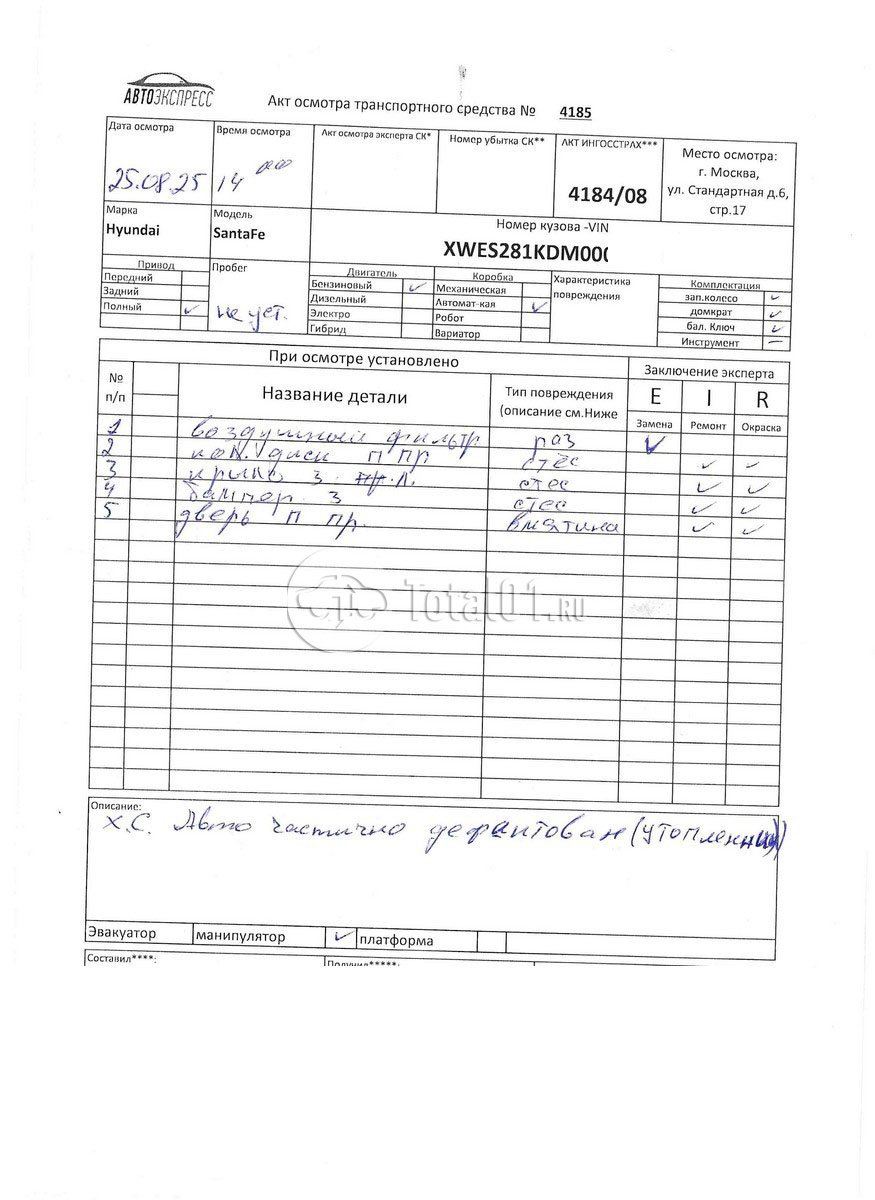 АВТОЭКСПРЕСС
Акт осмотра транспортного средства № 4185
Дата осмотра
25.08.25
Время осмотра
14 00
Акт осмотра эксперта СК*
Номер убытка СК**
АКТ ИНГОССТРАХ***
4184/08
Место осмотра:
г. Москва,
ул. Стандартная д.6,
стр.17
Марка
Hyundai
Модель
SantaFe
Номер кузова -VIN
XWES281KDM000
Привод
Передний
Задний
Полный ✓
Пробег
не уст.
Двигатель
Бензиновый ✓
Дизельный
Электро
Гибрид
Коробка
Механическая
Автомат-кая ✓
Робот
Вариатор
Характеристика
повреждения
Комплектация
зап.колесо ✓
домкрат ✓
бал. Ключ ✓
Инструмент —
При осмотре установлено
Заключение эксперта
№
п/п
Название детали
Тип повреждения
(описание см.Ниже
E I R
Замена Ремонт Окраска
1 воздушный фильтр раз ✓
2 диск п пр стес ✓ ✓
3 крыло з л. стес ✓ ✓
4 бампер з стес ✓ ✓
5 дверь п пр. вмятина ✓ ✓
Total01.RU
Описание:
Х.С. Авто частично дефектован (утопленник)
Эвакуатор манипулятор ✓ платформа
Составил****: Получил*****: